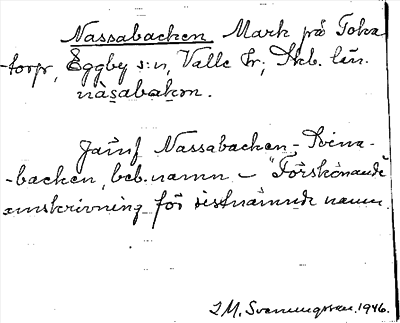 Nassabacken Mark på Toka
-torp, Eggby s:n, Valle hr; Skb. län.
nàsabakən.
Jämf Nassabacken, Svina-
-backen, beb.namn – "Förskönande
omskrivning för sistnämnde namn.
I.M. Svanungsson. 1946.